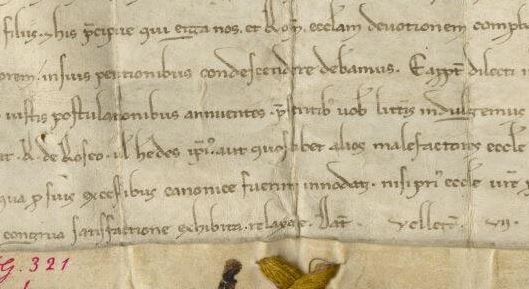 filiis. his p̄cipue qui erga nos. et Rom̄. eccl̄am deuotionem
in suis petitionibus condescendere debeamus. Eapp̄t dilecti
iustis postulationibus annuentes. p̄sentib; uob̄ litt̄is indulgemus
A. de Roseo. ul̄ hedes ip̄i. aut quoslibet alios malefactores eccl̄e
qua p̄ suis excessibus canonice fuerint innodati. nisi pri eccl̄e ur̄e
congrua satisfactione exhibita. relaxe. Dat̄. Velletr̄. vij.
G. 321